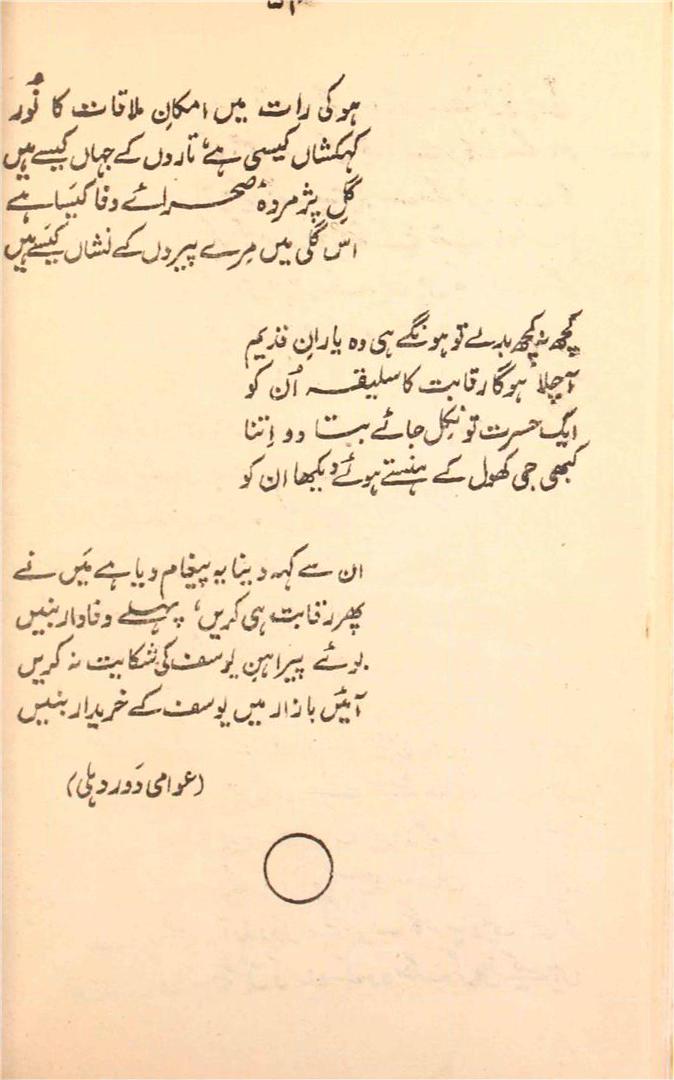 ہو کی رات میں امکانِ ملاقات کا نُور
کہکشاں کیسی ہے، تاروں کے جہاں کیسے ہیں
گلِ پژمردۂ صحرائے وفا کیسا ہے
اس گلی میں مِرے پیروں کے نشاں کیسے ہیں
کچھ نہ کچھ بدلے تو ہونگے ہی وہ یارانِ قدیم
آ چلا ہوگا رقابت کا سلیقہ اُن کو
ایک حسرت تو نِکل جائے بتا دو اِتنا
کبھی جی کھول کے ہنستے ہوئے دیکھا ان کو
ان سے کہہ دینا یہ پیغام دیا ہے مَیں نے
پھر رقابت ہی کریں، پہلے وفادار بنیں
بوئے پیراہنِ یوسف کی شکایت نہ کریں
آئیں بازار میں یوسف کے خریدار بنیں
(عوامی دَور دہلی)